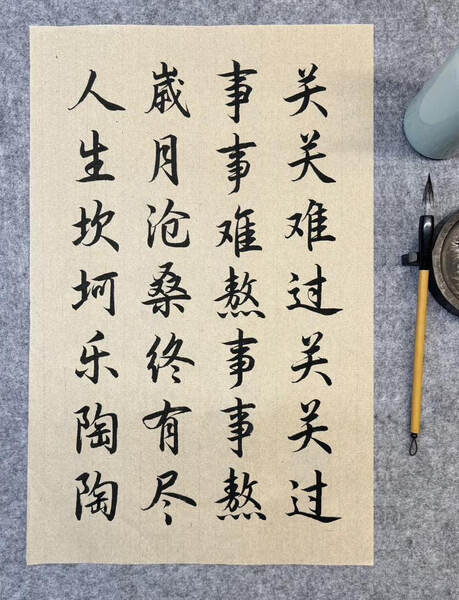 关关难过关关过
事事难熬事事熬
岁月沧桑终有尽
人生坎坷乐陶陶